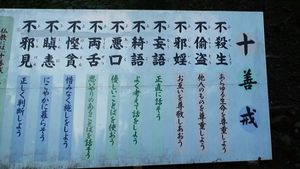 十善戒
不殺生
あらゆる生命を尊重しよう
不偸盗
他人のものを尊重しよう
不邪淫
お互いを尊敬しあおう
不妄語
正直に話そう
不綺語
よく考えて話そう
不悪口
優しいことばを使おう
不両舌
思いやりのあることばを話そう
不慳貪
惜しみなく施しをしよう
不瞋恚
にこやかに暮らそう
不邪見
正しく判断しよう